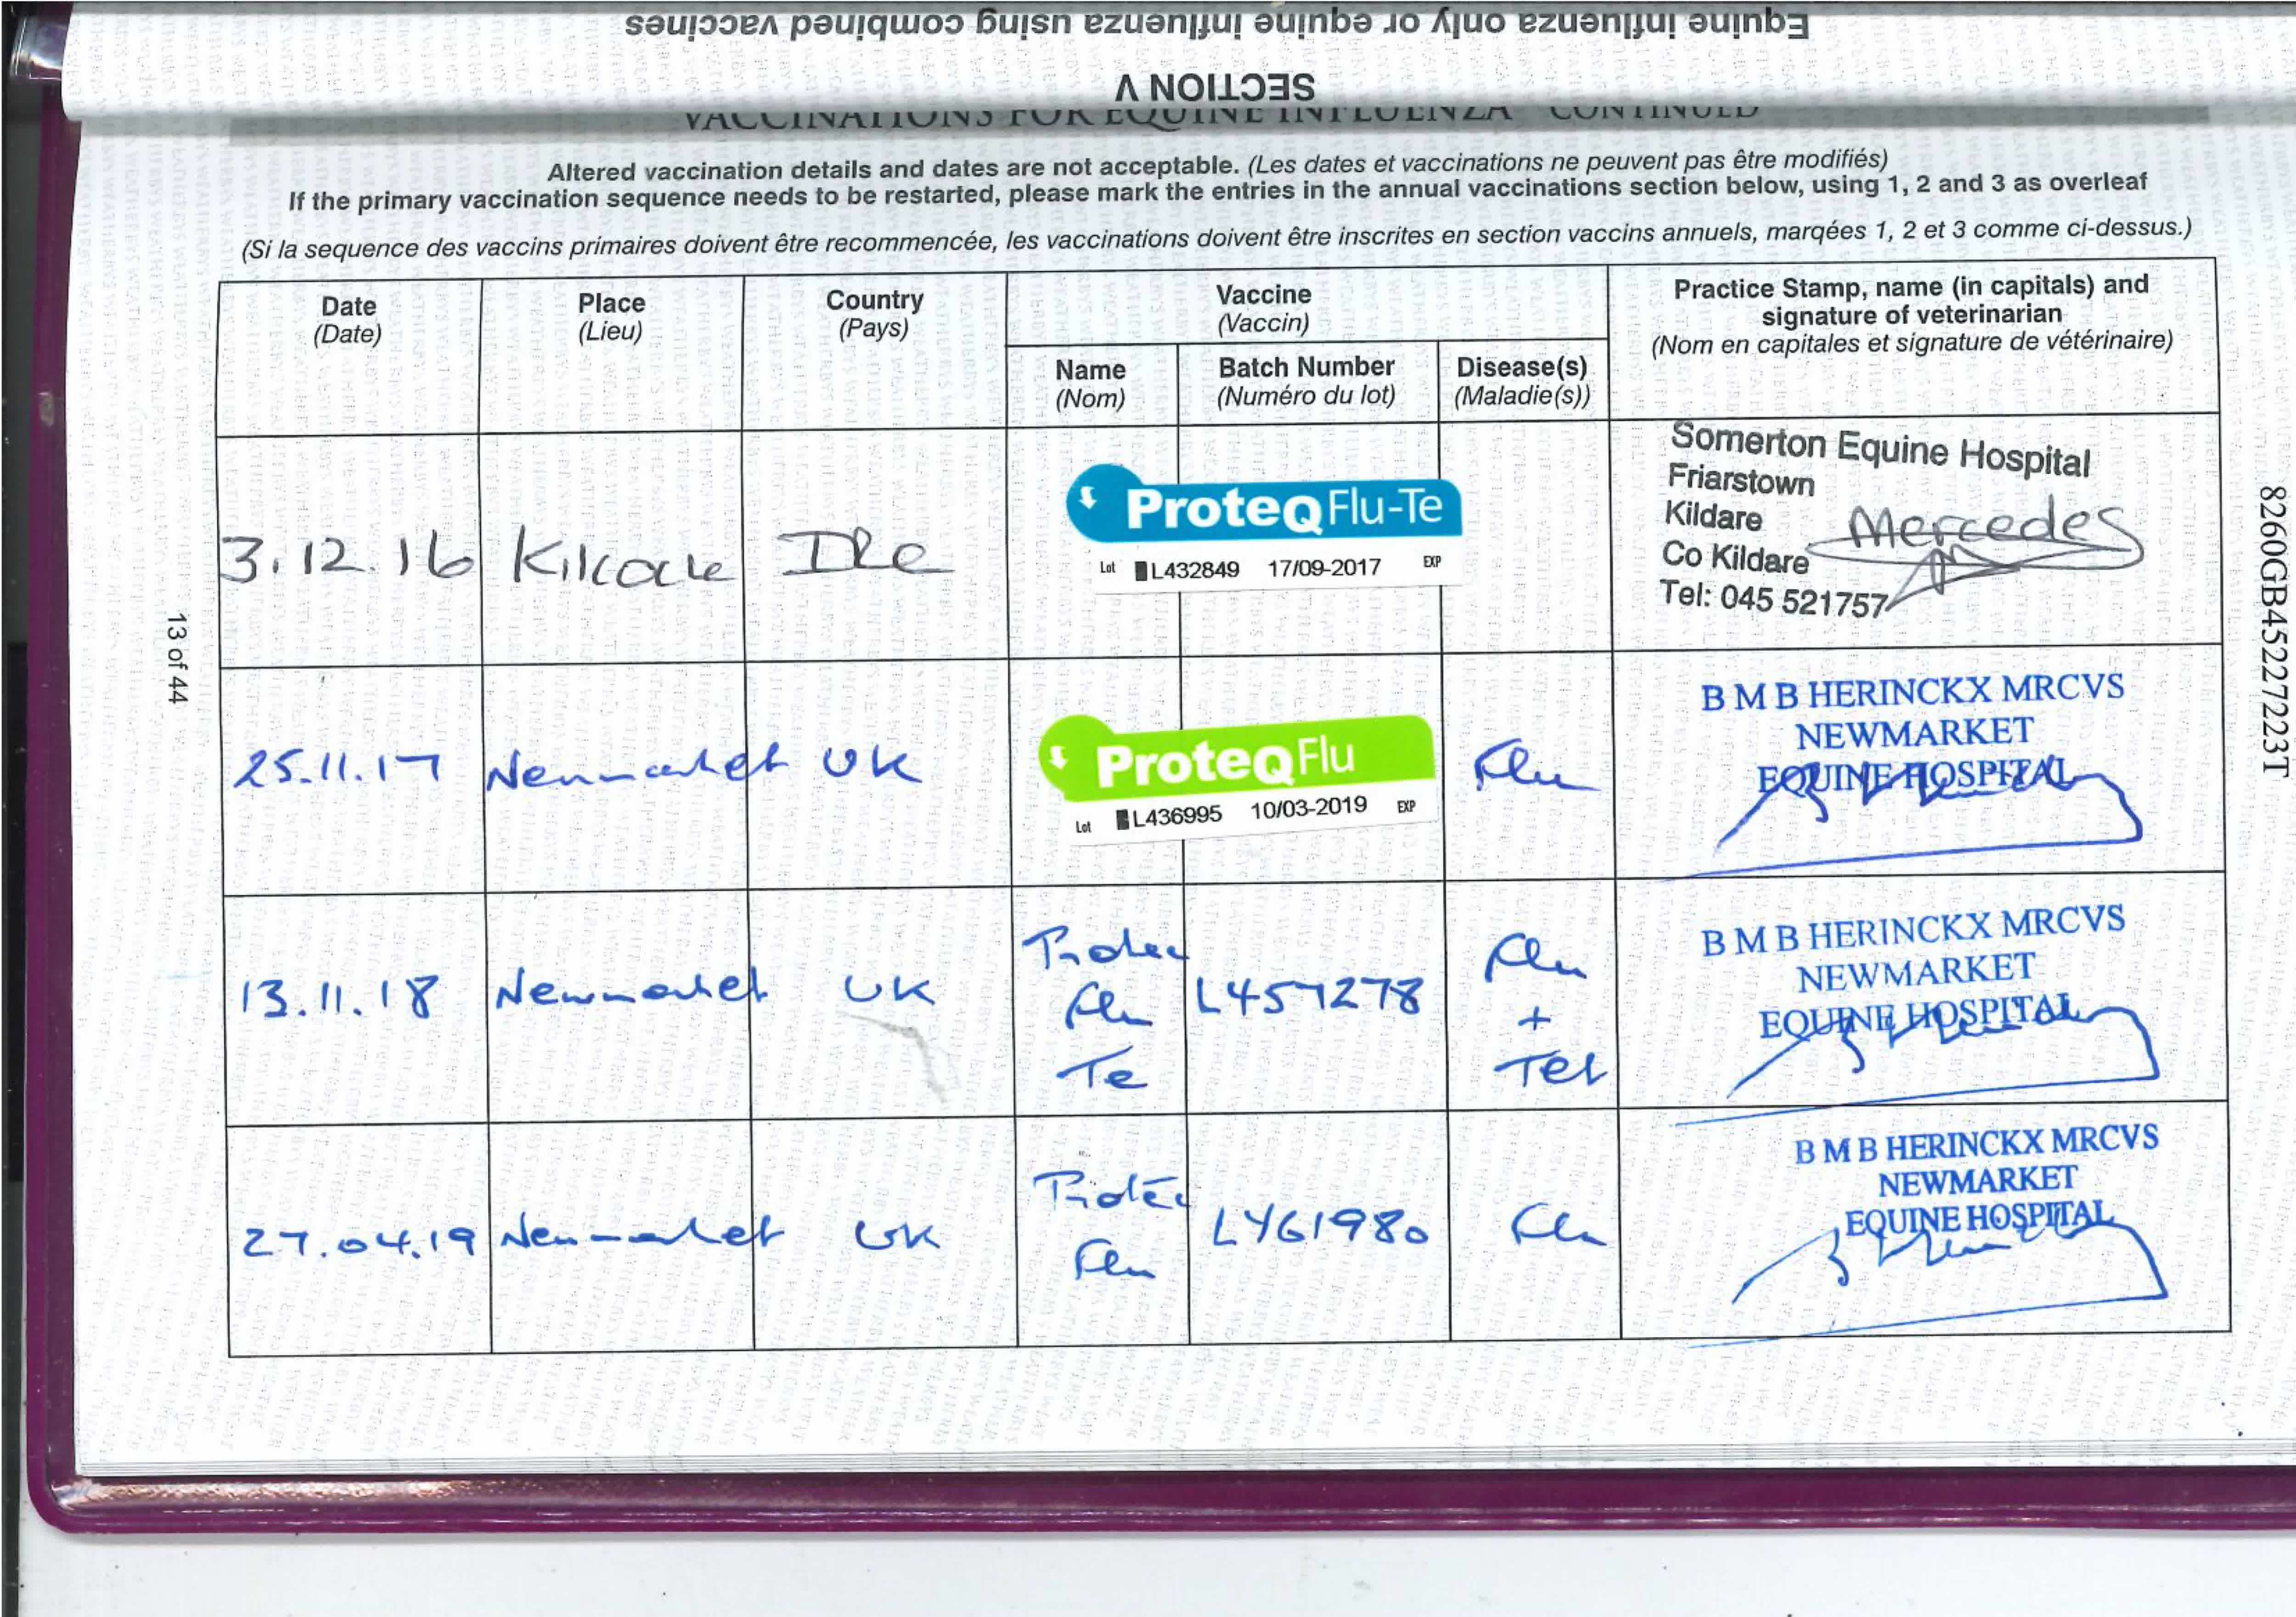 Equine influenza only or equine influenza using combined vaccines
SECTION V
VACCINATIONS FOR EQUINE INFLUENZA CONTINUED
Altered vaccination details and dates are not acceptable. (Les dates et vaccinations ne peuvent pas être modifiés)
If the primary vaccination sequence needs to be restarted, please mark the entries in the annual vaccinations section below, using 1, 2 and 3 as overleaf
(Si la sequence des vaccins primaires doivent être recommencée, les vaccinations doivent être inscrites en section vaccins annuels, marqées 1, 2 et 3 comme ci-dessus.)
Date
(Date)
Place
(Lieu)
Country
(Pays)
Vaccine
(Vaccin)
Name
(Nom)
Batch Number
(Numéro du lot)
Disease(s)
(Maladie(s))
Practice Stamp, name (in capitals) and
signature of veterinarian
(Nom en capitales et signature de vétérinaire)
3.12.16 Kildare Ire
ProteQ Flu-Te
Lot L432849 17/09-2017 EXP
Somerton Equine Hospital
Friarstown
Kildare
Co Kildare
Tel: 045 521757
Mercedes
25.11.17 Newmarket UK
ProteQ Flu
Lot L436995 10/03-2019 EXP
Flu
B M B HERINCKX MRCVS
NEWMARKET
EQUINE HOSPITAL
13.11.18 Newmarket UK
Protec
Flu
Te
L457278
Flu
+
Tet
B M B HERINCKX MRCVS
NEWMARKET
EQUINE HOSPITAL
27.04.19 Newmarket UK
Protec
Flu
L461980
Flu
B M B HERINCKX MRCVS
NEWMARKET
EQUINE HOSPITAL
13 of 44
8260GB45227223T